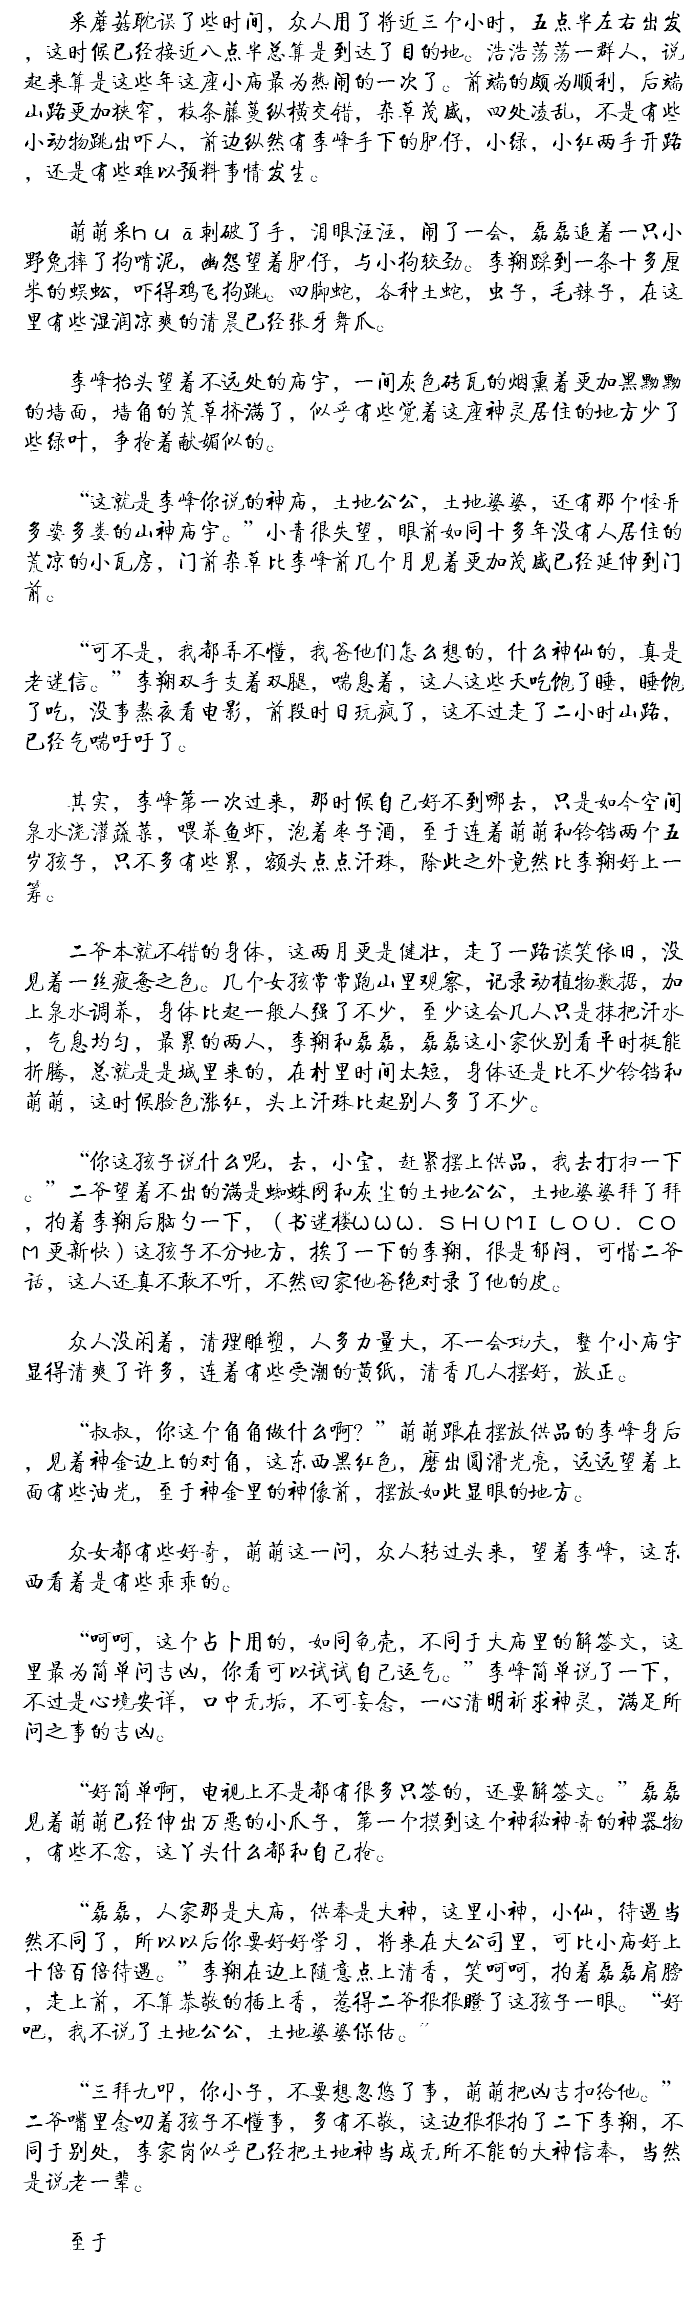 采蘑菇耽误了些时间，众人用了将近三个小时，五点半左右出发
，这时候已经接近八点半总算是到达了目的地。浩浩荡荡一群人，说
起来算是这些年这座小庙最为热闹的一次了。前端的颇为顺利，后端
山路更加狭窄，枝条藤蔓纵横交错，杂草茂盛，四处凌乱，不是有些
小动物跳出吓人，前边纵然有李峰手下的肥仔，小绿，小红两手开路
，还是有些难以预料事情发生。
萌萌采huā刺破了手，泪眼汪汪，闹了一会，磊磊追着一只小
野兔摔了狗啃泥，幽怨望着肥仔，与小狗较劲。李翔踩到一条十多厘
米的蜈蚣，吓得鸡飞狗跳。四脚蛇，各种土蛇，虫子，毛辣子，在这
里有些湿润凉爽的清晨已经张牙舞爪。
李峰抬头望着不远处的庙宇，一间灰色砖瓦的烟熏着更加黑黝黝
的墙面，墙角的荒草挤满了，似乎有些觉着这座神灵居住的地方少了
些绿叶，争抢着献媚似的。
“这就是李峰你说的神庙，土地公公，土地婆婆，还有那个怪异
多姿多娄的山神庙宇。”小青很失望，眼前如同十多年没有人居住的
荒凉的小瓦房，门前杂草比李峰前几个月见着更加茂盛已经延伸到门
前。
“可不是，我都弄不懂，我爸他们怎么想的，什么神仙的，真是
老迷信。”李翔双手支着双腿，喘息着，这人这些天吃饱了睡，睡饱
了吃，没事熬夜看电影，前段时日玩疯了，这不过走了二小时山路，
已经气喘吁吁了。
其实，李峰第一次过来，那时候自己好不到哪去，只是如今空间
泉水浇灌蔬菜，喂养鱼虾，泡着枣子酒，至于连着萌萌和铃铛两个五
岁孩子，只不多有些累，额头点点汗珠，除此之外竟然比李翔好上一
筹。
二爷本就不错的身体，这两月更是健壮，走了一路谈笑依旧，没
见着一丝疲惫之色。几个女孩常常跑山里观察，记录动植物数据，加
上泉水调养，身体比起一般人强了不少，至少这会几人只是抹把汗水
，气息均匀，最累的两人，李翔和磊磊，磊磊这小家伙别看平时挺能
折腾，总就是是城里来的，在村里时间太短，身体还是比不少铃铛和
萌萌，这时候脸色涨红，头上汗珠比起别人多了不少。
“你这孩子说什么呢，去，小宝，赶紧摆上供品，我去打扫一下
。”二爷望着不出的满是蜘蛛网和灰尘的土地公公，土地婆婆拜了拜
，拍着李翔后脑勺一下，（书迷楼WWW．SHUMILOU．CO
M更新快）这孩子不分地方，挨了一下的李翔，很是郁闷，可惜二爷
话，这人还真不敢不听，不然回家他爸绝对录了他的皮。
众人没闲着，清理雕塑，人多力量大，不一会功夫，整个小庙宇
显得清爽了许多，连着有些受潮的黄纸，清香几人摆好，放正。
“叔叔，你这个角角做什么啊？”萌萌跟在摆放供品的李峰身后
，见着神金边上的对角，这东西黑红色，磨出圆滑光亮，远远望着上
面有些油光，至于神金里的神像前，摆放如此显眼的地方。
众女都有些好奇，萌萌这一问，众人转过头来，望着李峰，这东
西看着是有些乖乖的。
“呵呵，这个占卜用的，如同龟壳，不同于大庙里的解签文，这
里最为简单问吉凶，你看可以试试自己运气。”李峰简单说了一下，
不过是心境安详，口中无垢，不可妄念，一心清明祈求神灵，满足所
问之事的吉凶。
“好简单啊，电视上不是都有很多只签的，还要解签文。”磊磊
见着萌萌已经伸出万恶的小爪子，第一个摸到这个神秘神奇的神器物
，有些不忿，这丫头什么都和自己抢。
“磊磊，人家那是大庙，供奉是大神，这里小神，小仙，待遇当
然不同了，所以以后你要好好学习，将来在大公司里，可比小庙好上
十倍百倍待遇。”李翔在边上随意点上清香，笑呵呵，拍着磊磊肩膀
，走上前，不算恭敬的插上香，惹得二爷狠狠瞪了这孩子一眼。“好
吧，我不说了土地公公，土地婆婆保估。”
“三拜九叩，你小子，不要想忽悠了事，萌萌把凶吉扣给他。”
二爷嘴里念叨着孩子不懂事，多有不敬，这边狠狠拍了二下李翔，不
同于别处，李家岗似乎已经把土地神当成无所不能的大神信奉，当然
是说老一辈。
至于